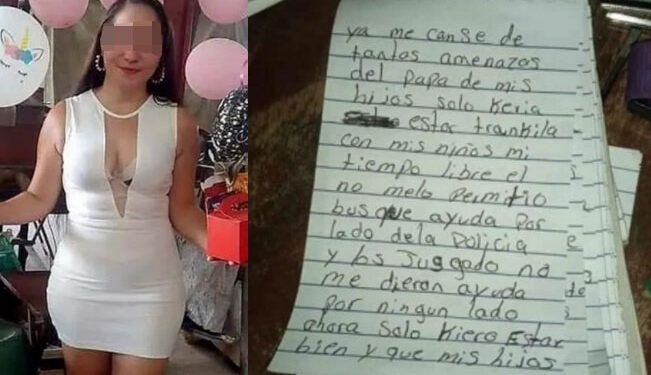 ya me canse de
tantas amenazas
del papa de mis
hijos solo keria
estar trankila
con mis niños mi
tiempo libre el
no melo permitio
busque ayuda por
lado dela Policia
y los Jusgado no
me dieron ayuda
por ningun lado
ahora solo kiero Estar
bien y que mis hijos